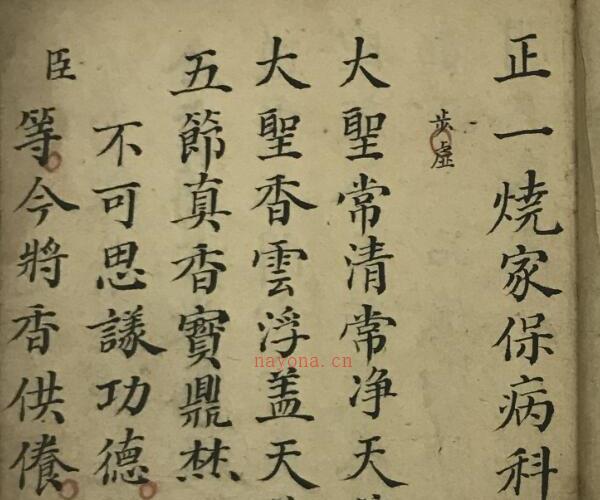 正一燒家保病科
步虛
大聖常清常净天
大聖香雲浮蓋天
五節真香寳鼎焚
不可思議功德
臣
等今將香供養
nayona.cn